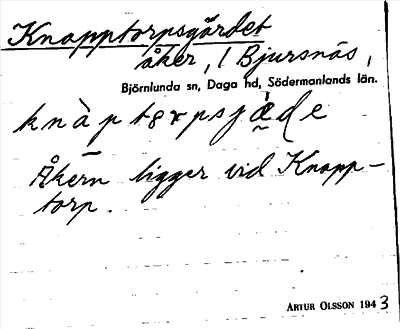 Knapptorpsgärdet
åker, l Bjursnäs,
Björnlunda sn, Daga hd, Södermanlands län.
Åkern ligger vid Knapp-
torp.
ARTUR OLSSON 1943